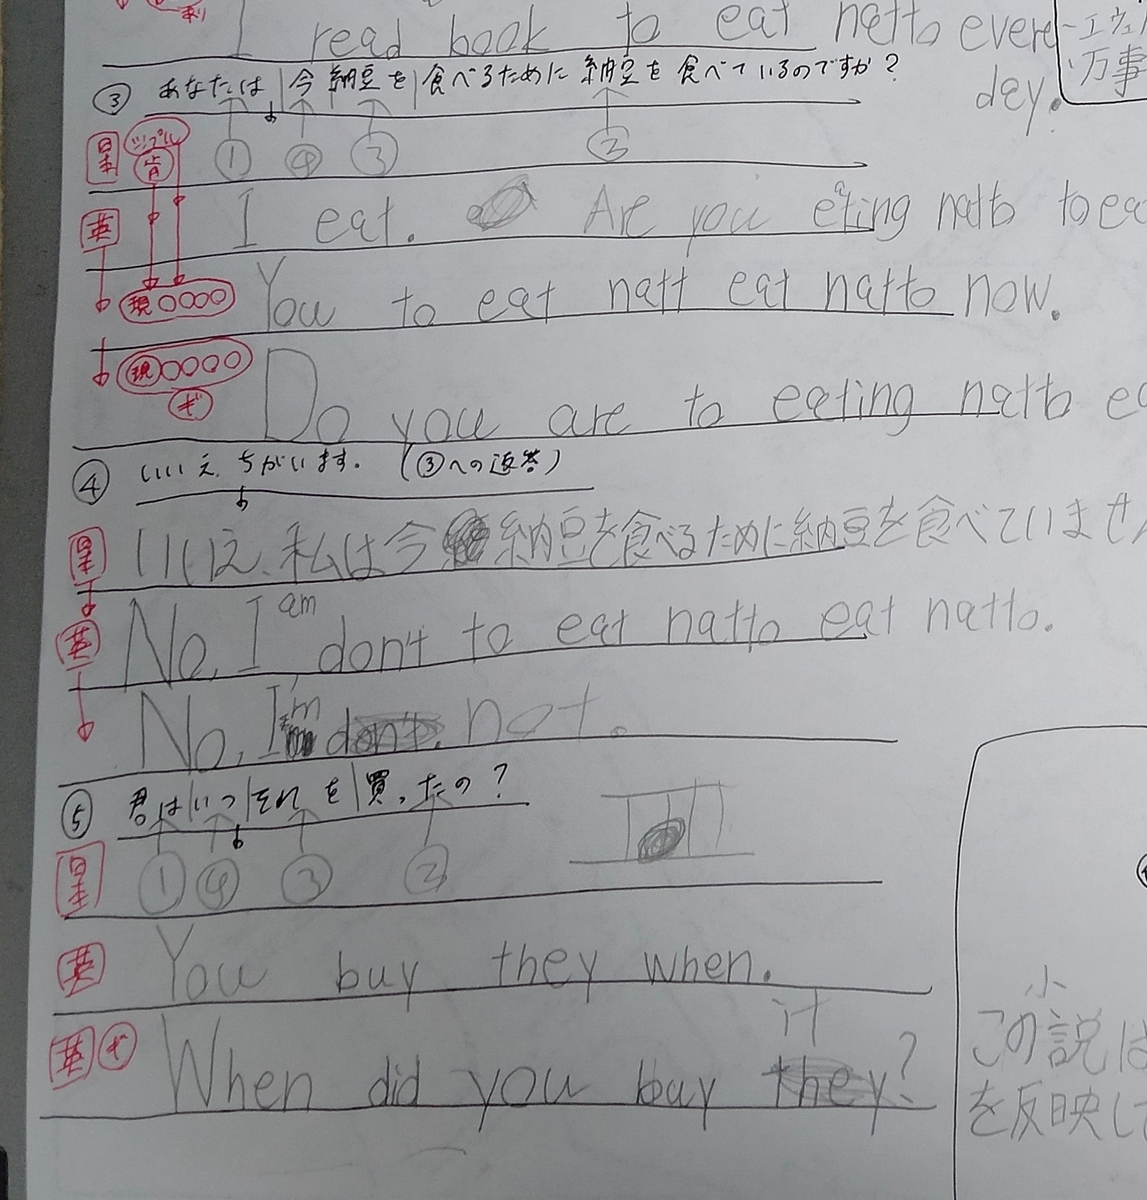 あり
I read book to eat netto evere
dey.
エウェ
万事
③ あなたは|今 納豆を|食べるために 納豆を 食べているのですか?
日本 シンプル 肯 ① ④ ③ ②
英 I eat. Are you eating natto to ea
現〇〇〇〇 You to eat natt eat natto now.
現〇〇〇〇 ギ Do you are to eating natto ea
④ いいえ、ちがいます。(③への返答)
日本 いいえ、私は今 納豆を食べるために納豆を食べていませ
英 No, I am don't to eat natto eat natto.
No, I'm not.
⑤ 君は|いつ|それを|買ったの?
日本 ① ④ ③ ②
英 You buy they when.
英 ギ When did you buy it they?
小
この説は
を反映して